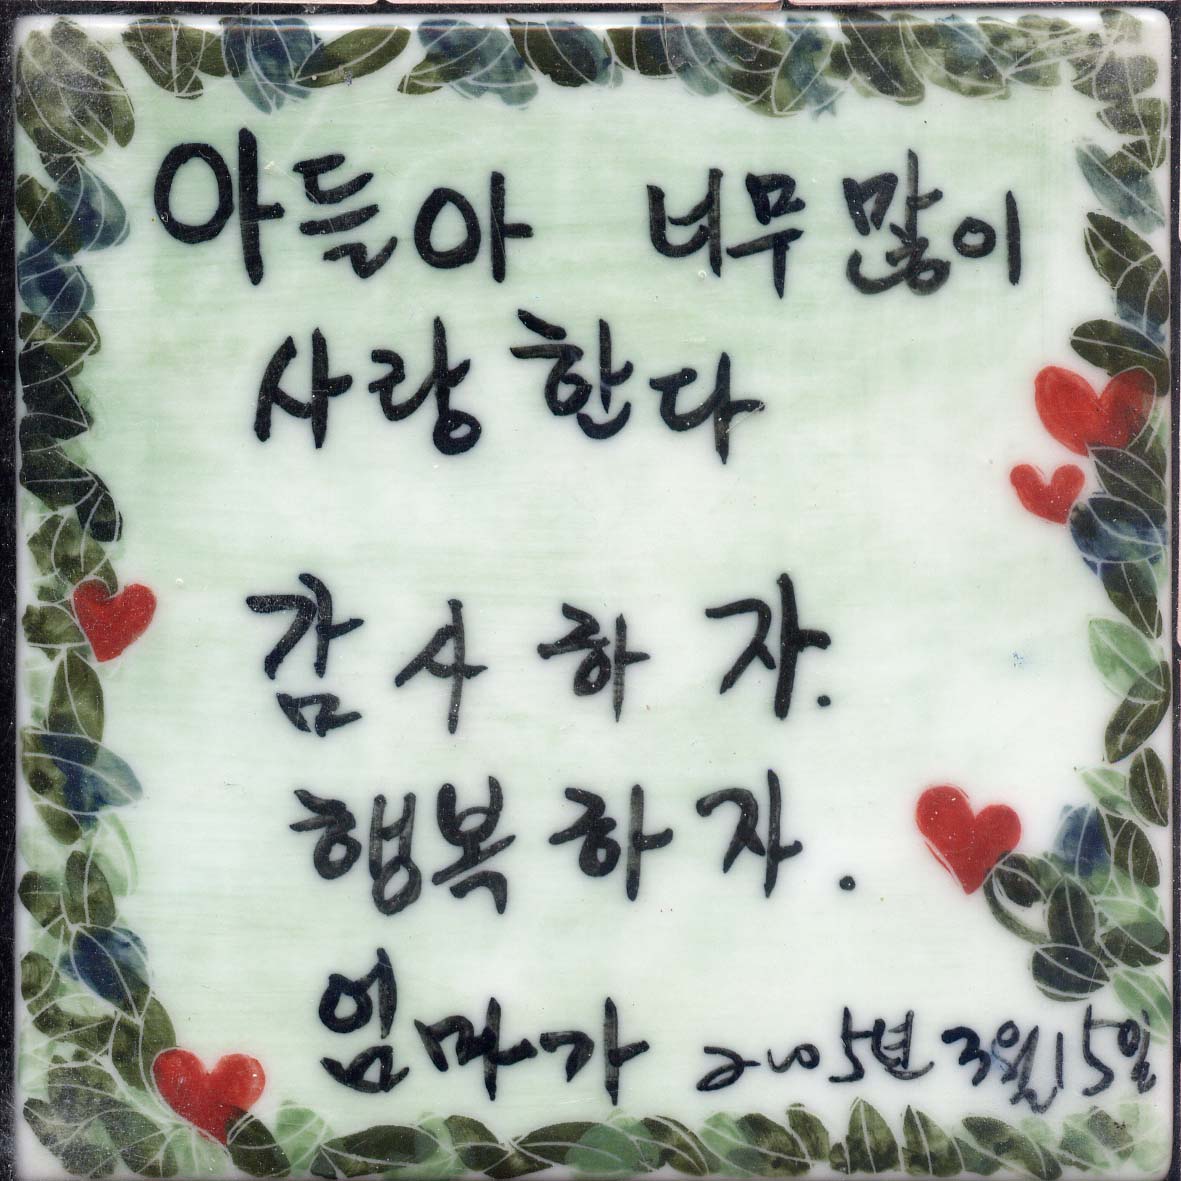 아들아 너무 많이
사랑한다
감사하자.
행복하자.
엄마가 2005년 3월 15일